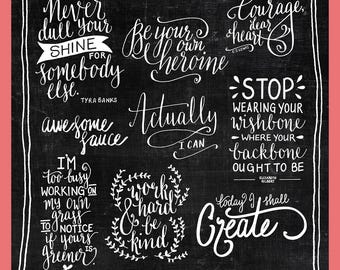 Never
dull your
SHINE FOR
somebody
else.
TYRA BANKS
Be your
own
heroine
Courage,
dear
heart
awesome
sauce
Actually
I CAN
STOP
WEARING YOUR
wishbone
WHERE YOUR
backbone
OUGHT TO BE
ELIZABETH
GILBERT
I'M
too busy
WORKING ON
my own
grass
TO NOTICE
if yours
is greener
work
hard
& be
kind
today I shall
Create